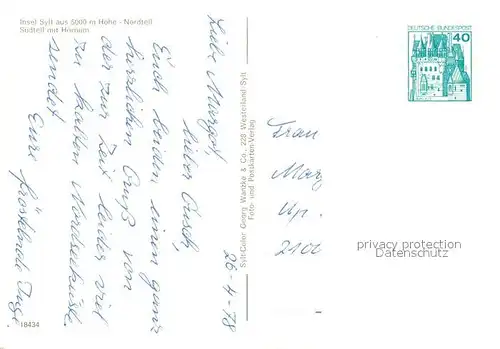 Insel Sylt aus 5000 m Höhe - Nordteil
Südteil mit Hörnum
26-4-78
Liebe Margot,
lieber
Euch beiden einen ganz
herzlichen Gruß von
der zur Zeit leider viel
zu kalten Nordseeküste.
sendet
Eure fröstelnde Inge
18434
Sylt-Color Georg Wantke & Co., 228 Westerland/Sylt
Foto- und Postkarten-Verlag
DEUTSCHE BUNDESPOST
40
Frau
Mar
2100
privacy protection
Datenschutz